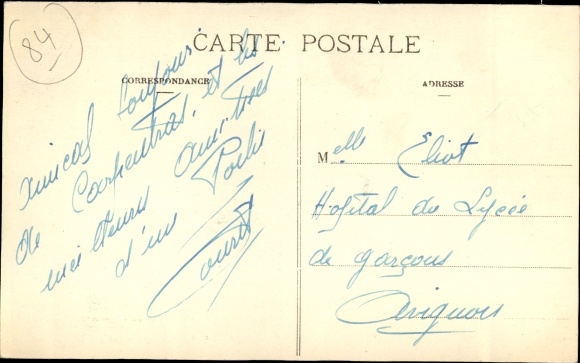 84
CARTE POSTALE
CORRESPONDANCE
ADRESSE
Amical toujours
de Carpentras, et les
meilleurs amitiés
d'un Poilu
Court
Melle Eliot
Hopital du Lycée
de garçons
Avignon